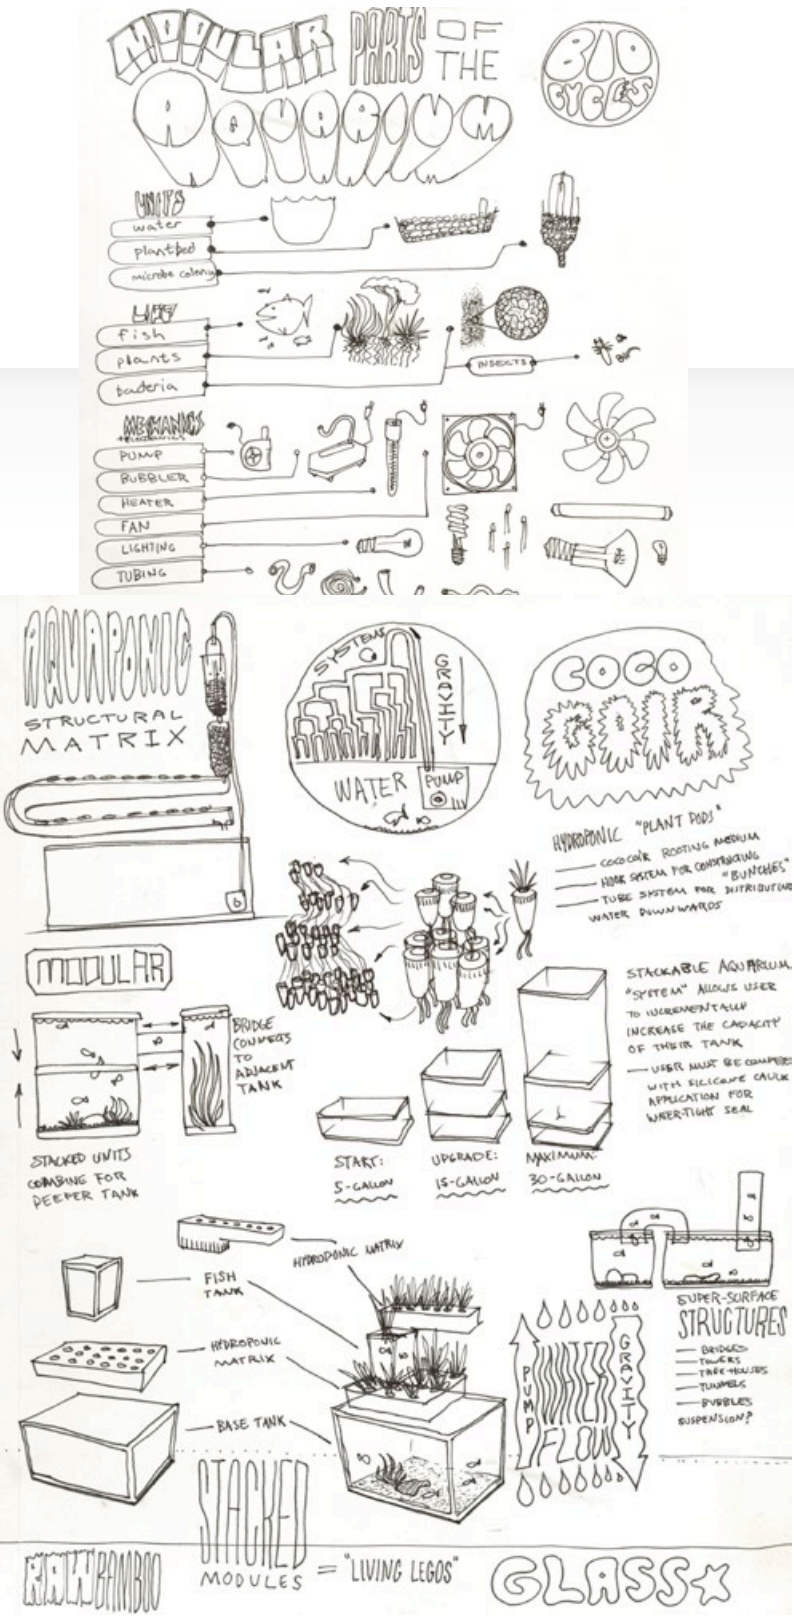 MODULAR PARTS OF
THE
AQUARIUM
BIO
CYCLES
UNITS
water
plantbed
microbe colony
LIFE
fish
plants
bacteria
INSECTS
MECHANICS
+ELECTRONICS
PUMP
BUBBLER
HEATER
FAN
LIGHTING
TUBING
AQUAPONIC
STRUCTURAL
MATRIX
SYSTEMS
GRAVITY
WATER
PUMP
COCO
COIR
HYDROPONIC "PLANT PODS"
— COCOCOIR ROOTING MEDIUM
— HOOK SYSTEM FOR CONSTRUCTING "BUNCHES"
— TUBE SYSTEM FOR DISTRIBUTING
WATER DOWNWARDS
MODULAR
BRIDGE
CONNECTS
TO
ADJACENT
TANK
STACKED UNITS
COMBINE FOR
DEEPER TANK
START:
5-GALLON
UPGRADE:
15-GALLON
MAXIMUM:
30-GALLON
STACKABLE AQUARIUM
"SYSTEM" ALLOWS USER
TO INCREMENTALLY
INCREASE THE CAPACITY
OF THEIR TANK
— USER MUST BE
WITH SILICONE CAULK
APPLICATION FOR
WATER-TIGHT SEAL
HYDROPONIC MATRIX
FISH
TANK
HYDROPONIC
MATRIX
BASE TANK
PUMP
WATER
FLOW
GRAVITY
SUPER-SURFACE
STRUCTURES
— BRIDGES
— TOWERS
— TREE-HOUSES
— TUNNELS
— BUBBLES
SUSPENSION?
STACKED
MODULES
= "LIVING LEGOS"
RAW BAMBOO
GLASS